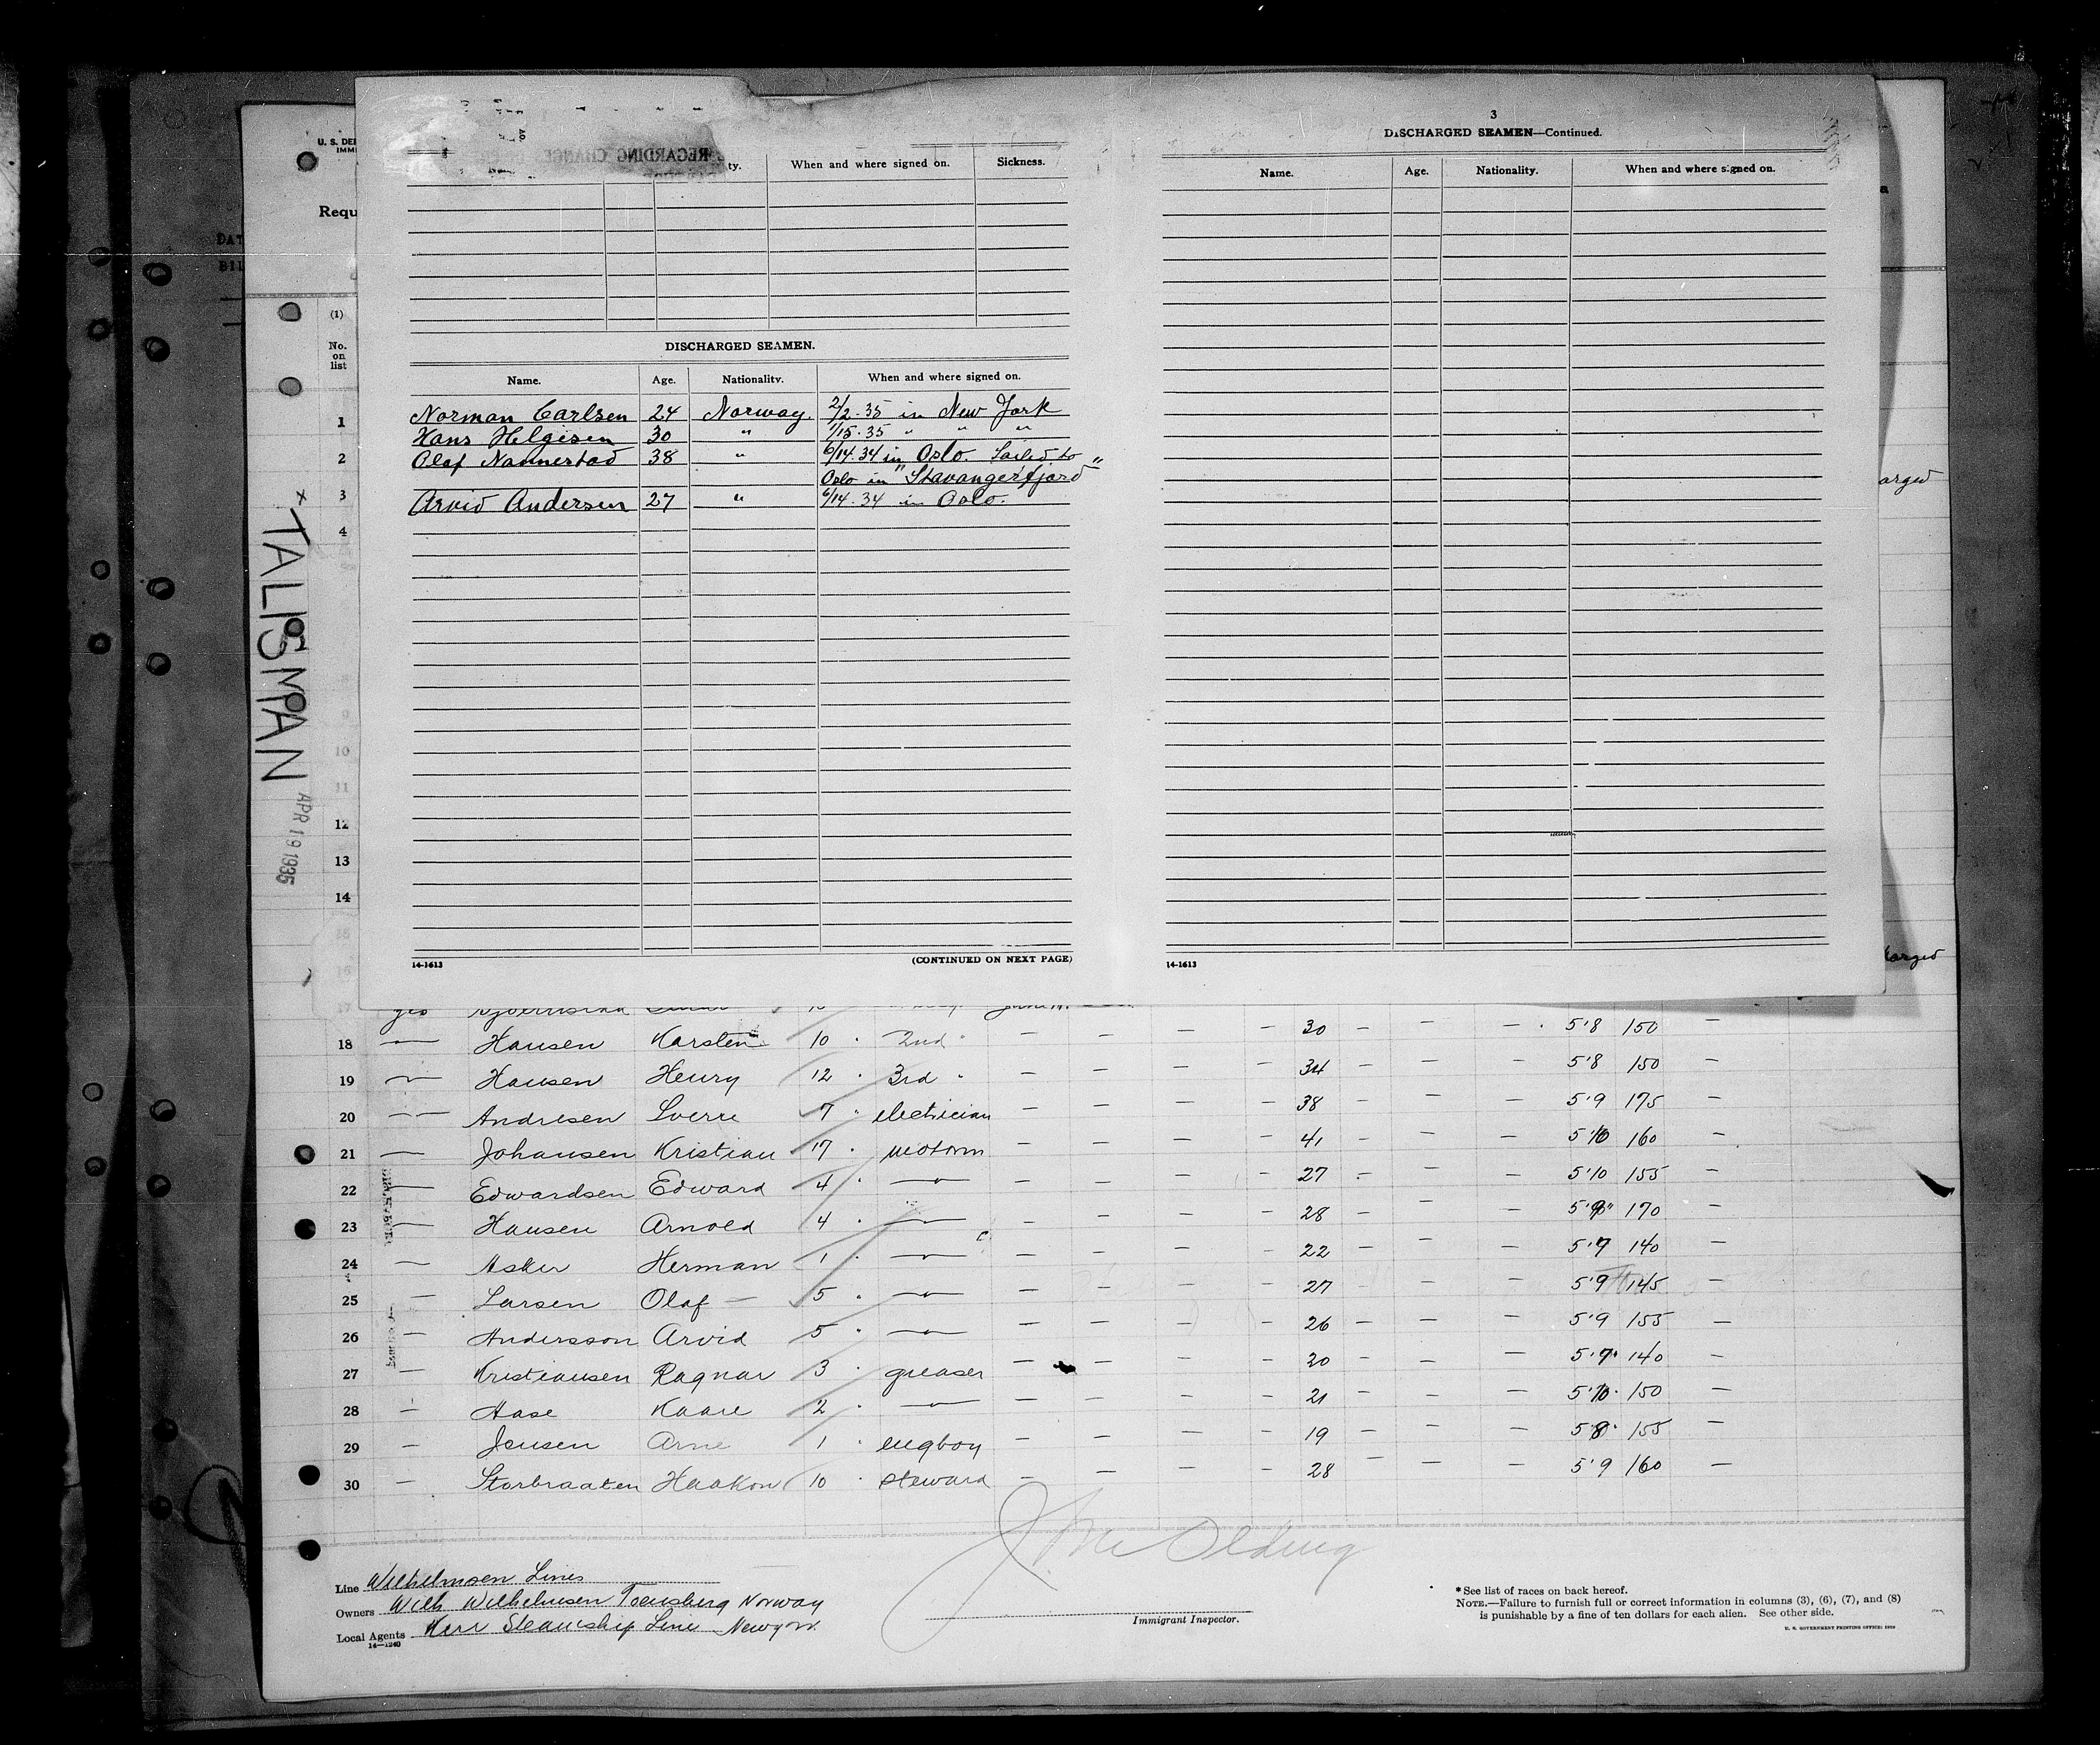 3
DISCHARGED SEAMEN—Continued.
U. S. DE
IMM
REGARDING CHANGE
ty. When and where signed on. Sickness.
Name. Age. Nationality. When and where signed on.
Requ
DAT
BIL
(1)
No.
on
list
DISCHARGED SEAMEN.
Name. Age. Nationality. When and where signed on.
1 Norman Carlsen 24 Norway 2/2-35 in New York
Hans Helgesen 30 " 1/15-35 " " "
2 Olaf Nannestad 38 " 6/14-34 in Oslo. Sailed to
Oslo in "Stavangerfjord"
3 Arvid Andersen 27 " 6/14-34 in Oslo.
4
x TALISMAN
APR 19 1935
9
10
11
12
13
14
15
16
arged
harged
14-1613 (CONTINUED ON NEXT PAGE)
14-1613
17 yes
18 — Hansen Karsten 10 2nd " — — — — 30 — — — 5'8 150 —
19 — Hansen Henry 12 3rd " — — — — 34 — — — 5'8 150 —
20 — Andresen Sverre 7 " electrician — — — — 38 — — — 5'9 175 —
21 — Johansen Kristian 17 motorm — — — — 41 — — — 5'10 160 —
22 — Edwardsen Edward 4 —"— — — — — 27 — — — 5'10 155 —
23 — Hansen Arnold 4 —"— — — — — 28 — — — 5'9" 170 —
24 — Asker Herman 1 —"— — — — — 22 — — — 5'7 140 —
25 — Larsen Olaf — 5 —"— — — — — 27 — — — 5'9 145 —
26 — Andersson Arvid 5 —"— — — — — 26 — — — 5'9 155 —
27 — Kristiansen Ragnar 3 greaser — — — — 20 — — — 5'7" 140 —
28 — Aase Kaare 2 —"— — — — — 21 — — — 5'10 150 —
29 — Jensen Arne 1 engboy — — — — 19 — — — 5'8 155 —
30 — Storbraaten Haakon 10 steward — — — — 28 — — — 5'9 160 —
Line Wilhelmsen Lines
Owners Wilh Wilhelmsen Toensberg Norway
Local Agents Kerr Steamship Line
14—1240
Immigrant Inspector.
* See list of races on back hereof.
NOTE.—Failure to furnish full or correct information in columns (3), (6), (7), and (8)
is punishable by a fine of ten dollars for each alien. See other side.
U. S. GOVERNMENT PRINTING OFFICE: 1929